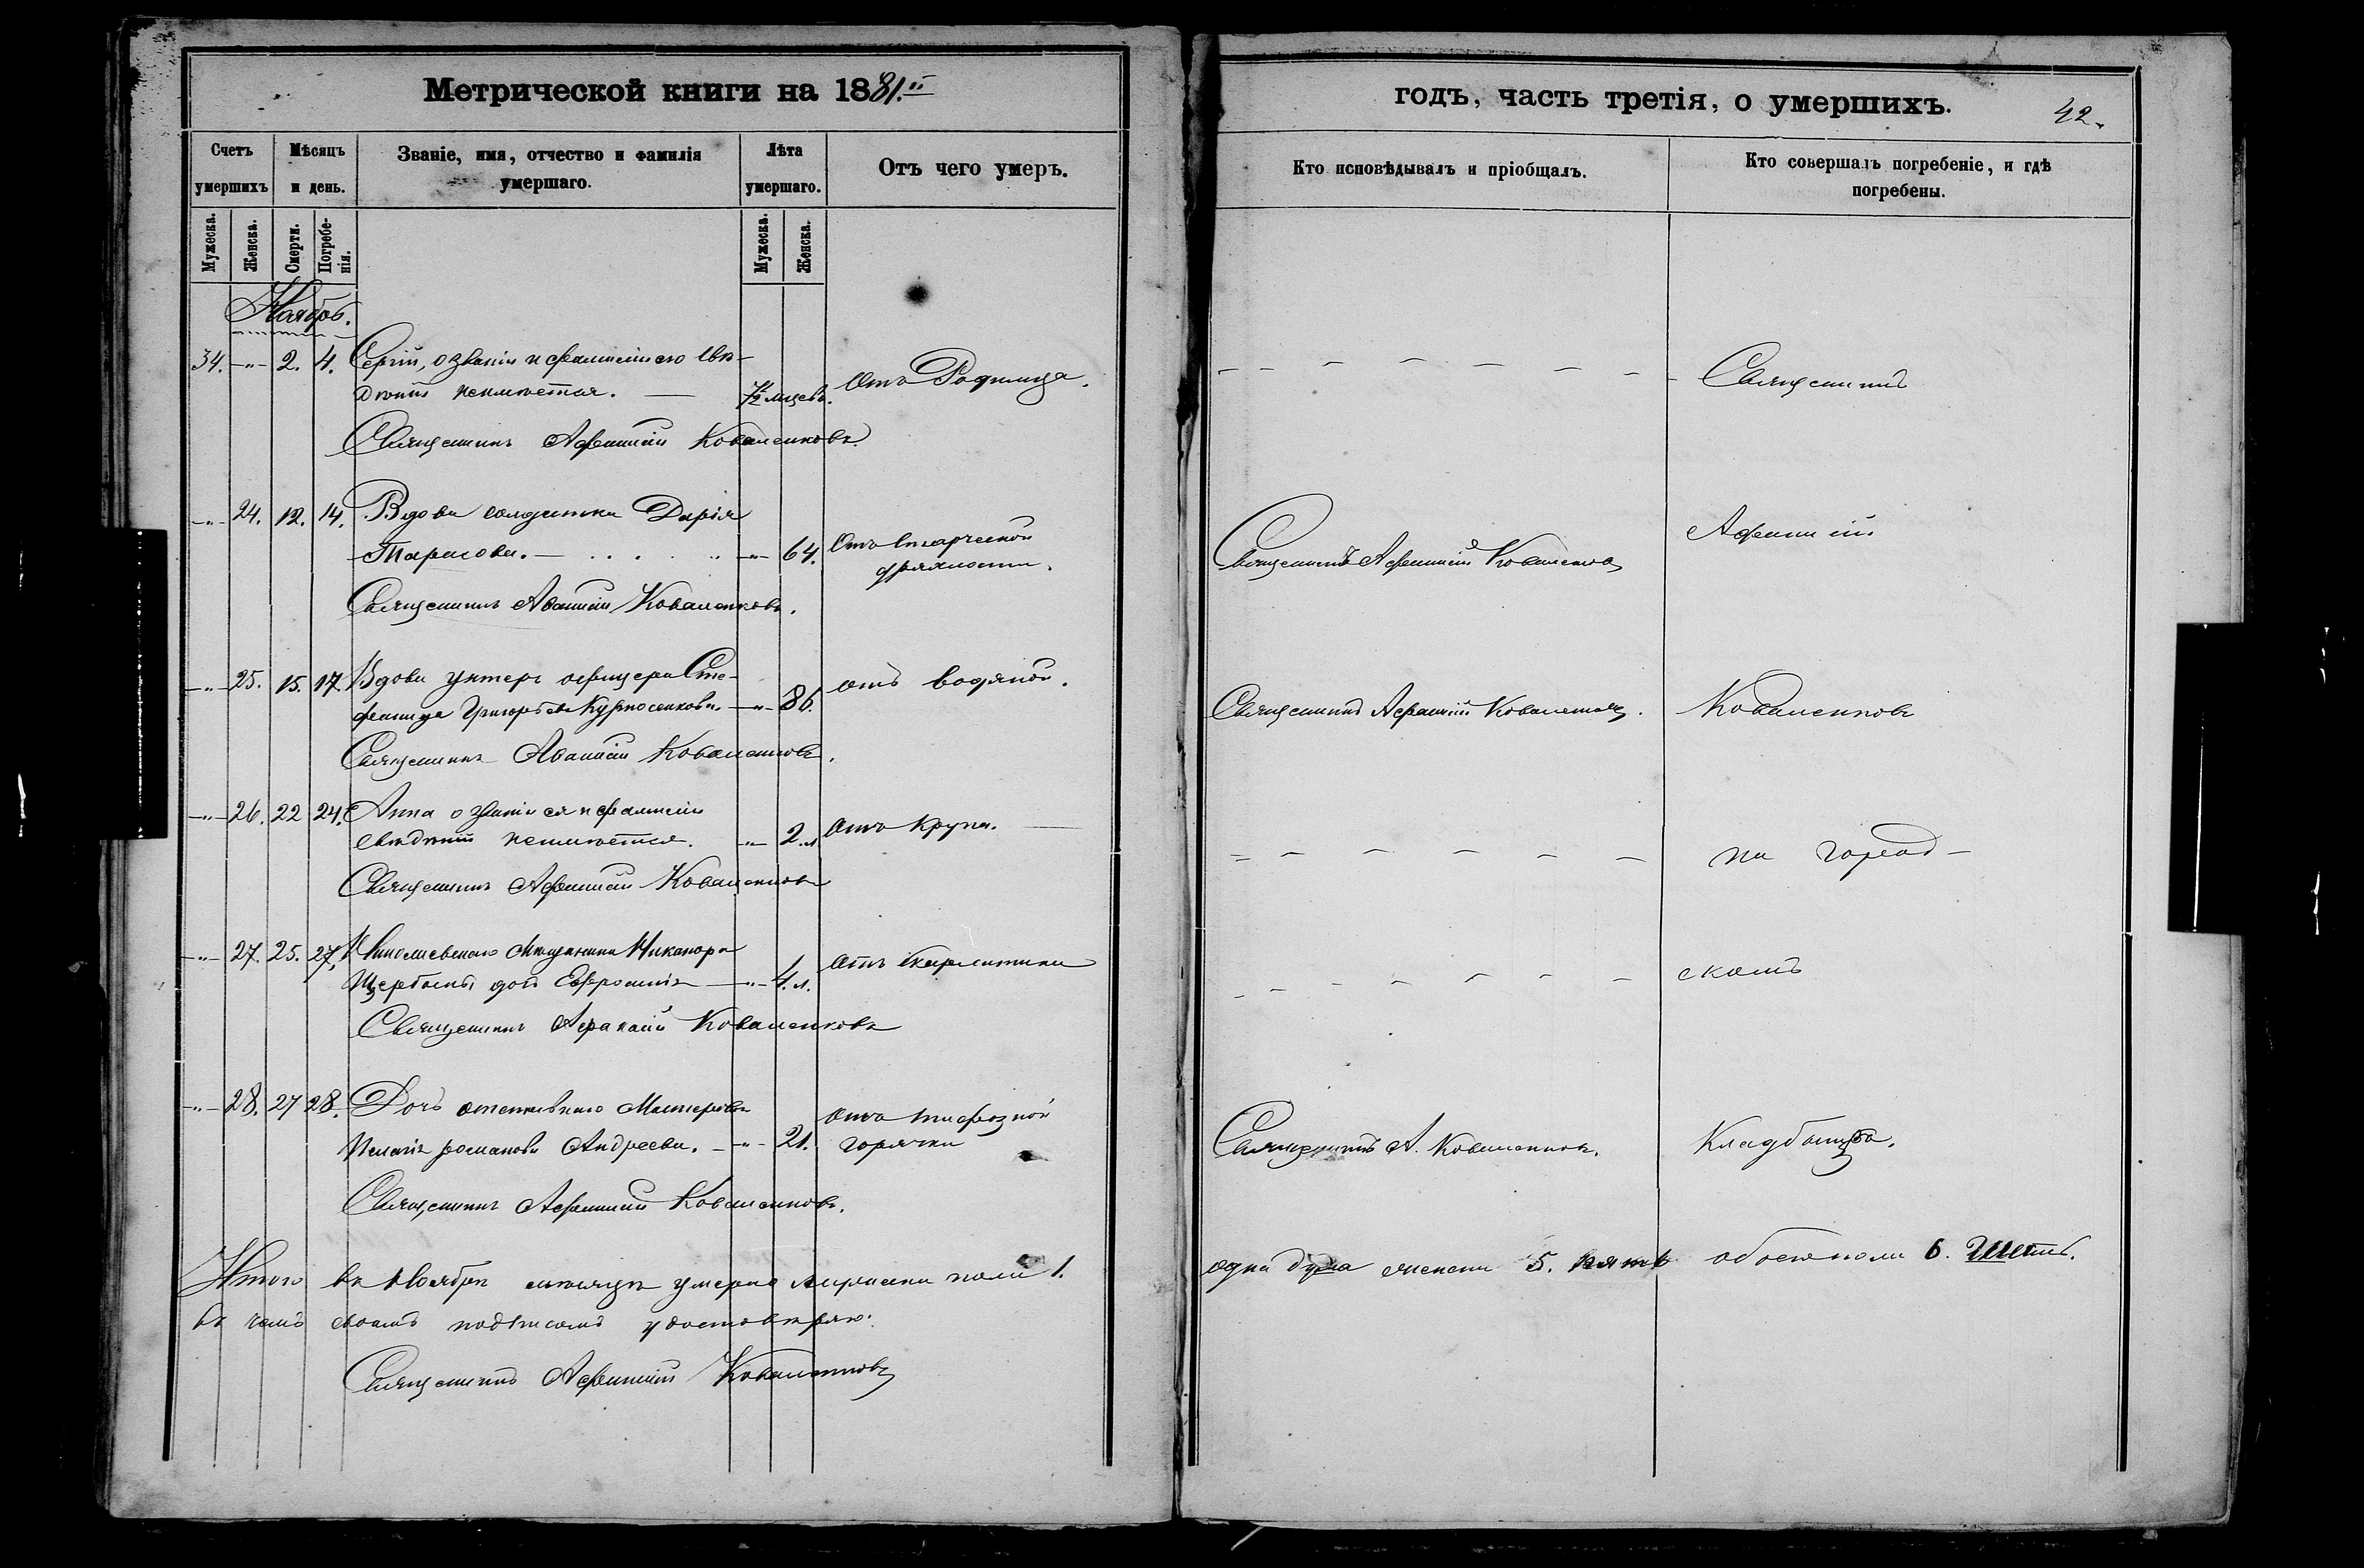 Метрической книги на 1881.й
годъ, часть третія, о умершихъ.
42.
Счетъ умершихъ
Мѣсяцъ и день.
Званіе, имя, отчество и фамилія умершаго.
Лѣта умершаго.
Отъ чего умеръ.
Кто исповѣдывалъ и пріобщалъ.
Кто совершалъ погребеніе, и гдѣ погребены.
Мужеска.
Женска.
Смерти.
Погребе-
нія.
Мужеска.
Женска.
Ноябрь.
34. -"- 2. 4. Сергій, о званіи и фамиліи его свѣ-
дѣній неимѣется. — мцевъ. Отъ Родимца. Священникъ
Священникъ Афанасій Коваленковъ
-"- 24. 12. 14. Вдова солдатка Дарія
Тарасова. — -"- 64. Отъ старческой
дряхлости.
Священникъ Афанасій Коваленковъ
Афанасій
Священникъ Аванасій Коваленковъ.
-"- 25. 15. 17. Вдова унтеръ офицера Сте-
фанида Григорьева Курносенкова. -"- 86. отъ водяной.
Священникъ Афанасій Коваленковъ.
Коваленковъ
Священникъ Аванасій Коваленковъ.
-"- 26. 22 24. Анна о званіи ея и фамиліи
свѣдѣній неимѣется. -"- 2. л Отъ Крупа. —
на город-
Священникъ Афанасій Коваленковъ
-"- 27. 25. 27. Николаевскаго Мѣщанина Никанора
дочь Ефросинія -"- 4. л. Отъ скарлатины
скомъ
Священникъ Афанасій Коваленковъ
-"- 28. 27 28. Дочь отставнаго Мастероваго
Пелагія романова Андреева. -"- 21. отъ тифозной
горячки
Священникъ А. Коваленковъ.
Кладбищѣ.
Священникъ Афанасій Коваленковъ.
Итого въ Ноябрѣ мѣсяцѣ умерло мужеска пола 1. одна душа женска 5. пять обоего пола 6. Шесть.
въ чемъ своимъ подписомъ удостовѣряю.
Священникъ Афанасій Коваленковъ